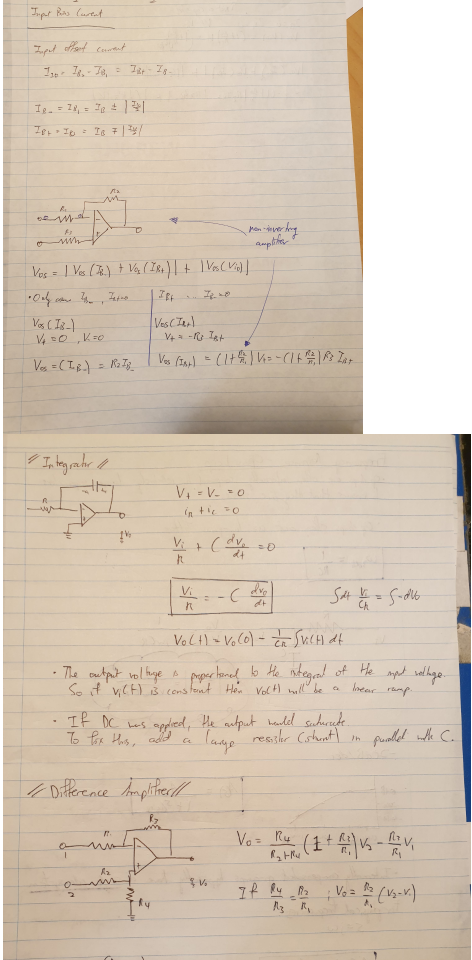 Input Bias Current
Input offset current
I_IO = I_B+ - I_B- = I_B+ - I_B-
I_B- = I_B1 = I_B ± |I_IO/2|
I_B+ = I_B = I_B ∓ |I_IO/2|
R2
R1
R3
non-inverting
amplifier
V_OS = | V_OS(I_B-) + V_OS(I_B+) | + | V_OS(V_IO) |
V_OS(I_B-)
V+ = 0 , V- = 0
V_OS = (I_B-) = R2 I_B-
I_B+ ... I_B- = 0
V_OS(I_B+)
V+ = -R3 I_B+
V_OS(I_B+) = (1 + R2/R1) V+ = -(1 + R2/R1) R3 I_B+
// Integrator //
R
Vo
V+ = V- = 0
i_R + i_C = 0
Vi/R + C dVo/dt = 0
Vi/R = - C dVo/dt
∫dt Vi/CR = ∫-dVo
Vo(t) = Vo(0) - 1/CR ∫Vi(t) dt
• The output voltage is proportional to the integral of the input voltage.
So if Vi(t) is constant then Vo(t) will be a linear ramp.
• If DC was applied, the output would saturate
To fix this, add a large resistor (shunt) in parallel with C.
// Difference Amplifier //
R1
1
R2
2
R4
Vo
Vo = R4/(R3+R4) (1 + R2/R1) V2 - R2/R1 V1
If R4/R3 = R2/R1 ; Vo = R2/R1 (V2-V1)